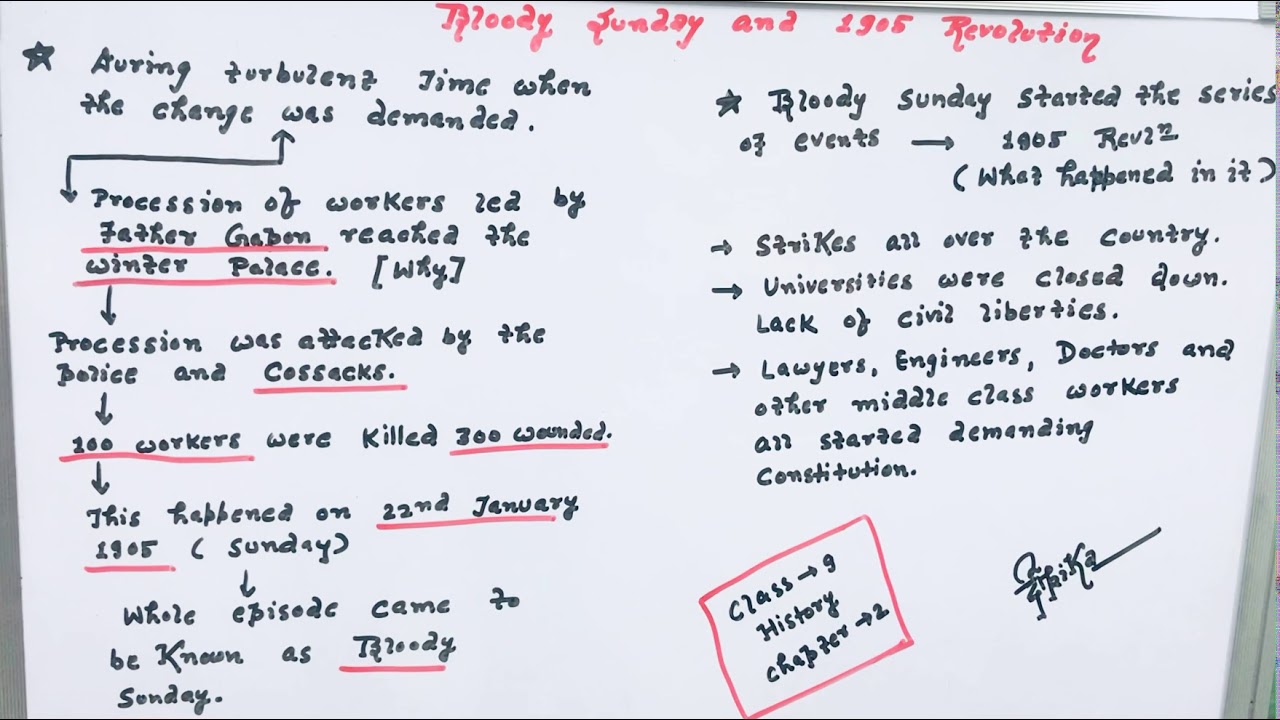 Bloody Sunday and 1905 Revolution
★ During turbulent Time when
the change was demanded.
Procession of workers led by
Father Gapon reached the
winter Palace. [Why]
Procession was attacked by the
police and Cossacks.
100 workers were killed 300 wounded.
This happened on 22nd January
1905 (Sunday)
Whole episode came to
be Known as Bloody
Sunday.
★ Bloody Sunday started the series
of events → 1905 Revlⁿ
(What happened in it)
→ Strikes all over the country.
→ Universities were closed down.
Lack of civil liberties.
→ Lawyers, Engineers, Doctors and
other middle class workers
all started demanding
Constitution.
Class → 9
History
Chapter → 2